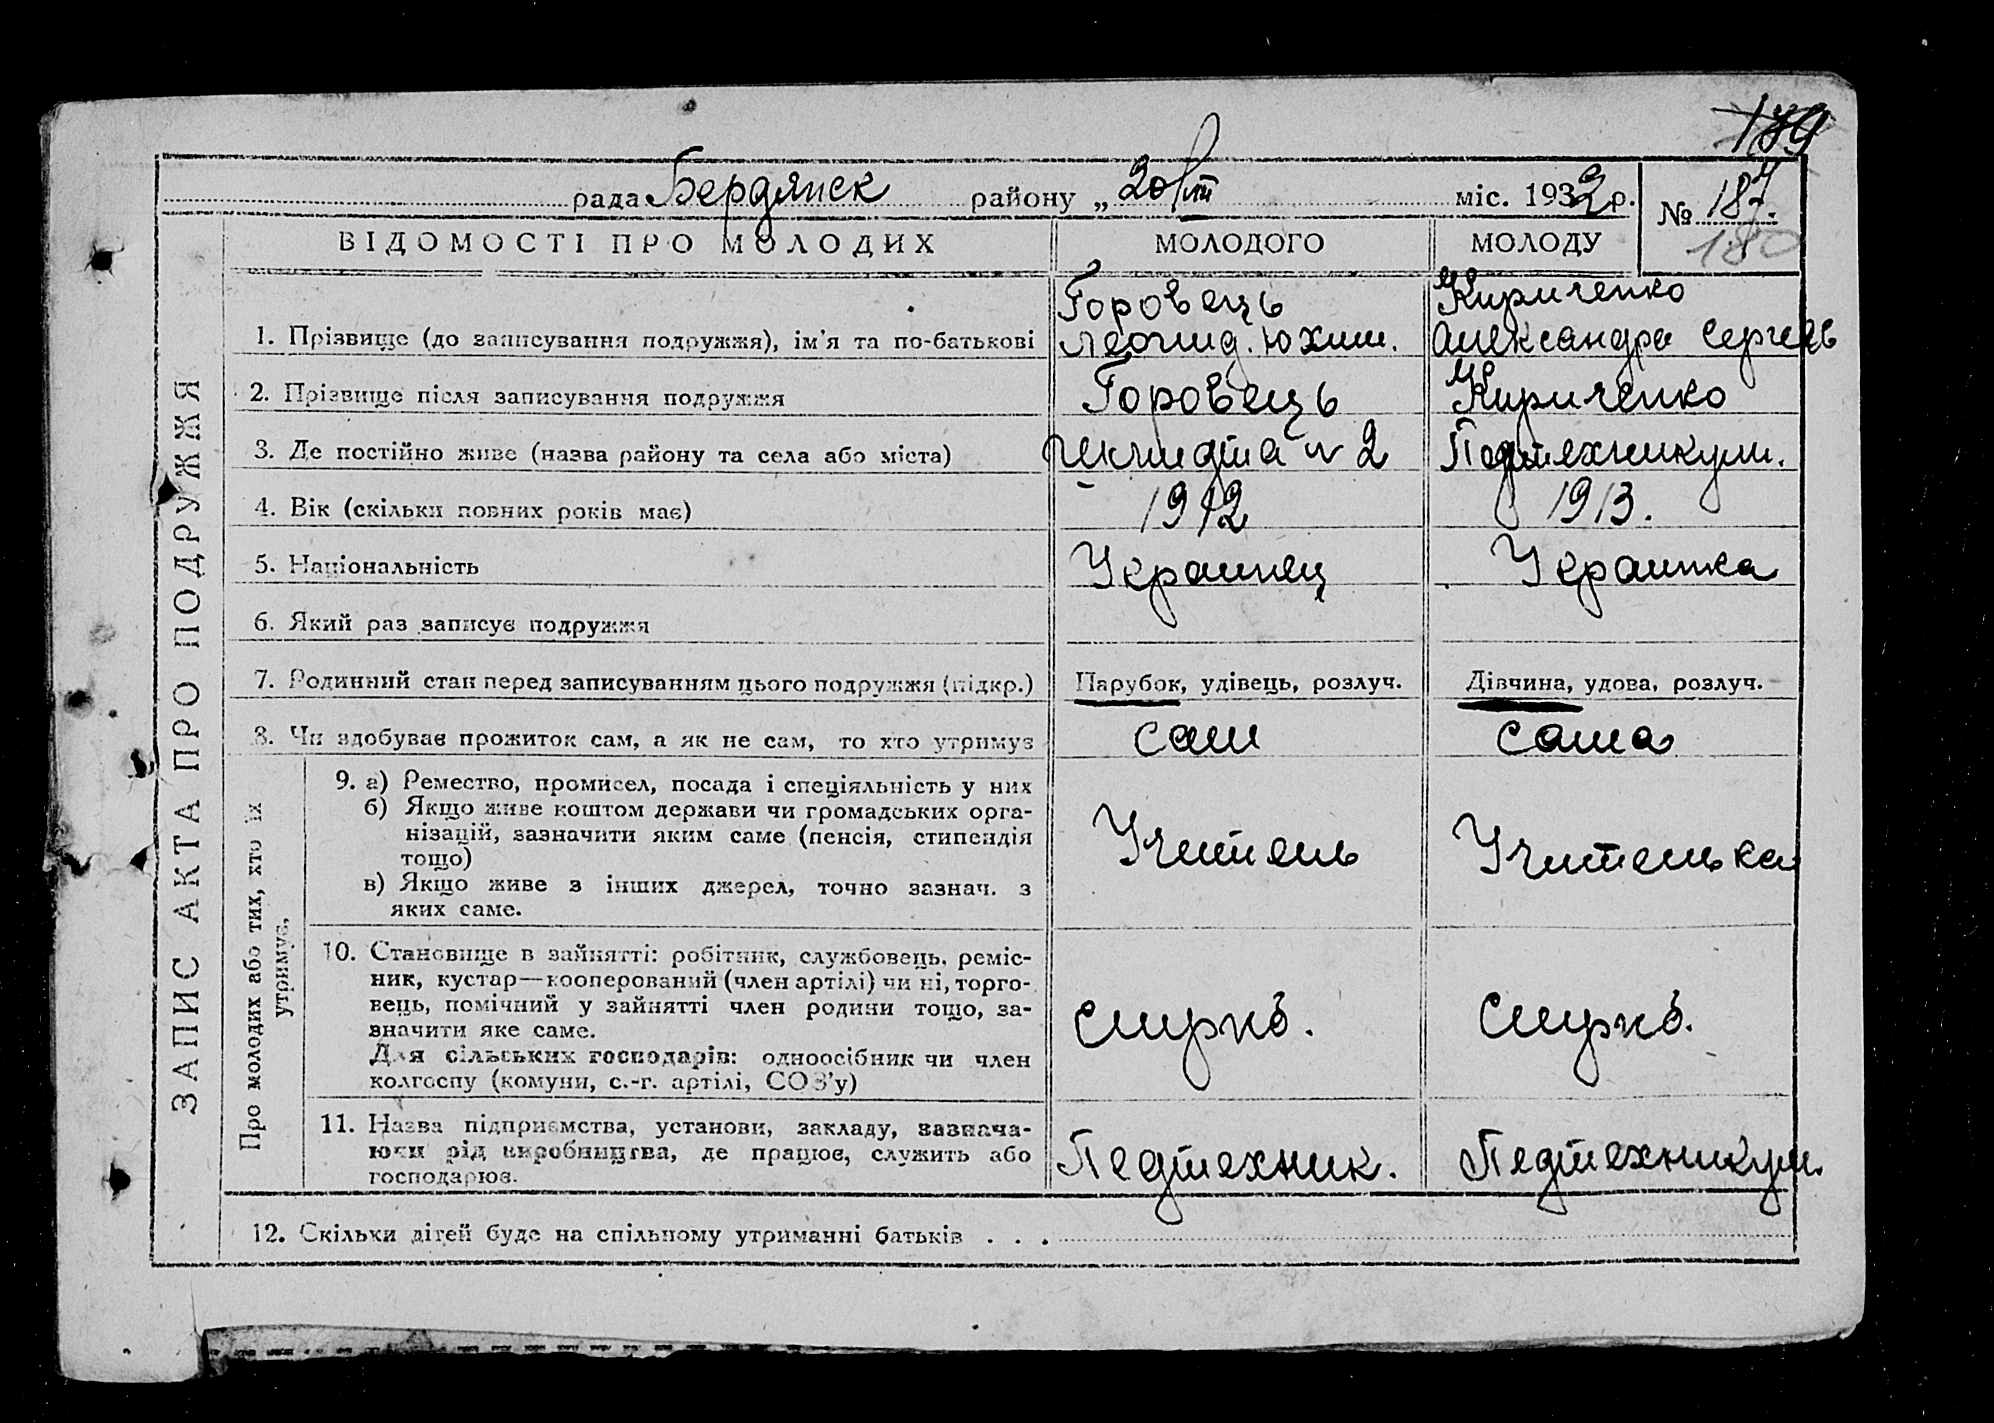 179
рада Бердянск району „20/III міс. 1932 р. № 187.
180
ВІДОМОСТІ ПРО МОЛОДИХ МОЛОДОГО МОЛОДУ
ЗАПИС АКТА ПРО ПОДРУЖЖЯ
Горовець Кириченко
1. Прізвище (до записування подружжя), ім'я та по-батькові Леонид. Юхим. Александра Сергеев
2. Прізвище після записування подружжя Горовець Кириченко
3. Де постійно живе (назва району та села або міста) 2 Педтехникум.
4. Вік (скільки повних років має) 1912 1913.
5. Національність Украинец Украинка
6. Який раз записує подружжя
7. Родинний стан перед записуванням цього подружжя (підкр.) Парубок, удівець, розлуч. Дівчина, удова, розлуч.
8. Чи здобуває прожиток сам, а як не сам, то хто утримує сам сама
Про молодих або тих, хто їх
утримує,
9. а) Ремество, промисел, посада і спеціяльність у них
б) Якщо живе коштом держави чи громадських орга-
нізацій, зазначити яким саме (пенсія, стипендія
тощо)
в) Якщо живе з інших джерел, точно зазнач. з
яких саме.
Учитель Учителька
10. Становище в зайнятті: робітник, службовець, реміс-
ник, кустар—кооперований (член артілі) чи ні, торго-
вець, помічний у зайнятті член родини тощо, за-
значити яке саме.
Для сільських господарів: одноосібник чи член
колгоспу (комуни, с.-г. артілі, СОЗ'у)
11. Назва підприємства, установи, закладу, зазнача-
ючи рід виробництва, де працює, служить або
господарює.
Педтехник. Педтехникум.
12. Скільки дітей буде на спільному утриманні батьків . . .